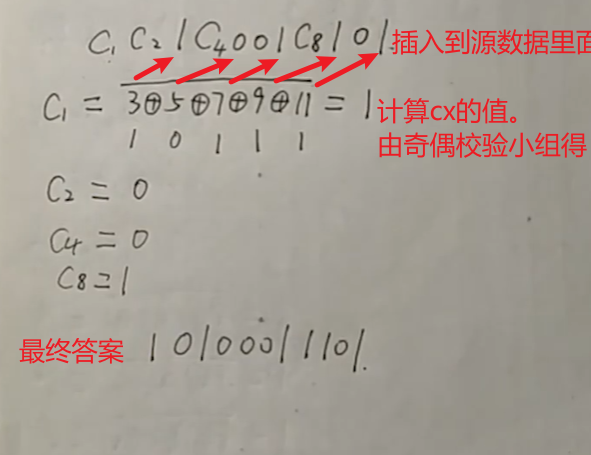 C₁ C₂ 1 C₄ 0 0 1 C₈ 1 0 1. 插入到源数据里面
C₁ = 3⊕5⊕7⊕9⊕11 = 1 计算cx的值。
1 0 1 1 1 由奇偶校验小组得
C₂ = 0
C₄ = 0
C₈ = 1
最终答案 1 0 1 0 0 0 1 1 1 0 1.